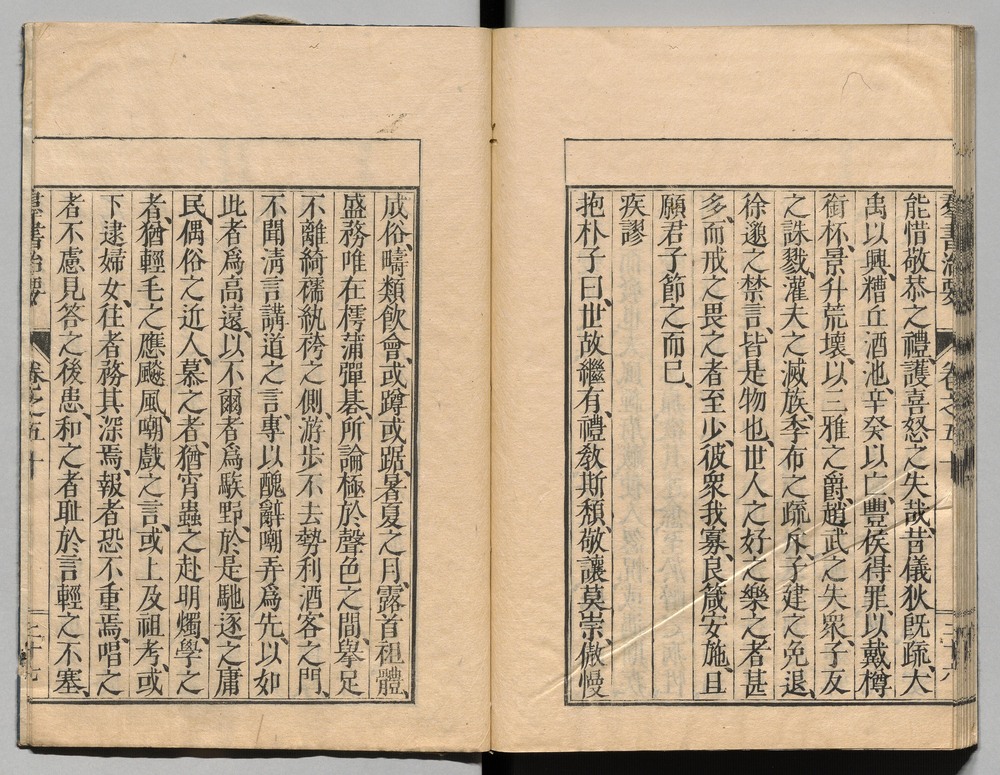 群書治要 卷之五十 二十六
能惜敬恭之禮、護喜怒之失哉、昔儀狄既疏、大
禹以興、糟丘酒池、辛癸以亡、豐侯得罪、以戴樽
銜杯、景升荒壞、以三雅之爵、趙武之失眾、子友
之誅戮、灌夫之滅族、季布之疏斥、子建之免退、
徐邈之禁言、皆是物也、世人之好之樂之者甚
多、而戒之畏之者至少、彼眾我寡、良箴安施、且
願君子節之而已、
疾謬
抱朴子曰、世故繼有、禮敎斯頹、敬讓莫崇、傲慢
成俗、疇類飲會、或蹲或踞、暑夏之月、露首袒體、
盛務唯在樗蒲彈碁、所論極於聲色之間、擧足
不離綺襦紈袴之側、游步不去勢利酒客之門、
不聞清言講道之言、專以醜辭嘲弄爲先、以如
此者爲高遠、以不爾者爲騃野、於是馳逐之庸
民、偶俗之近人、慕之者、猶宵蟲之赴明燭、學之
者、猶輕毛之應飈風、嘲戲之言、或上及祖考、或
下逮婦女、往者務其深焉、報者恐不重焉、唱之
者不慮見答之後患、和之者耻於言輕之不塞、
群書治要 卷之五十 二十七